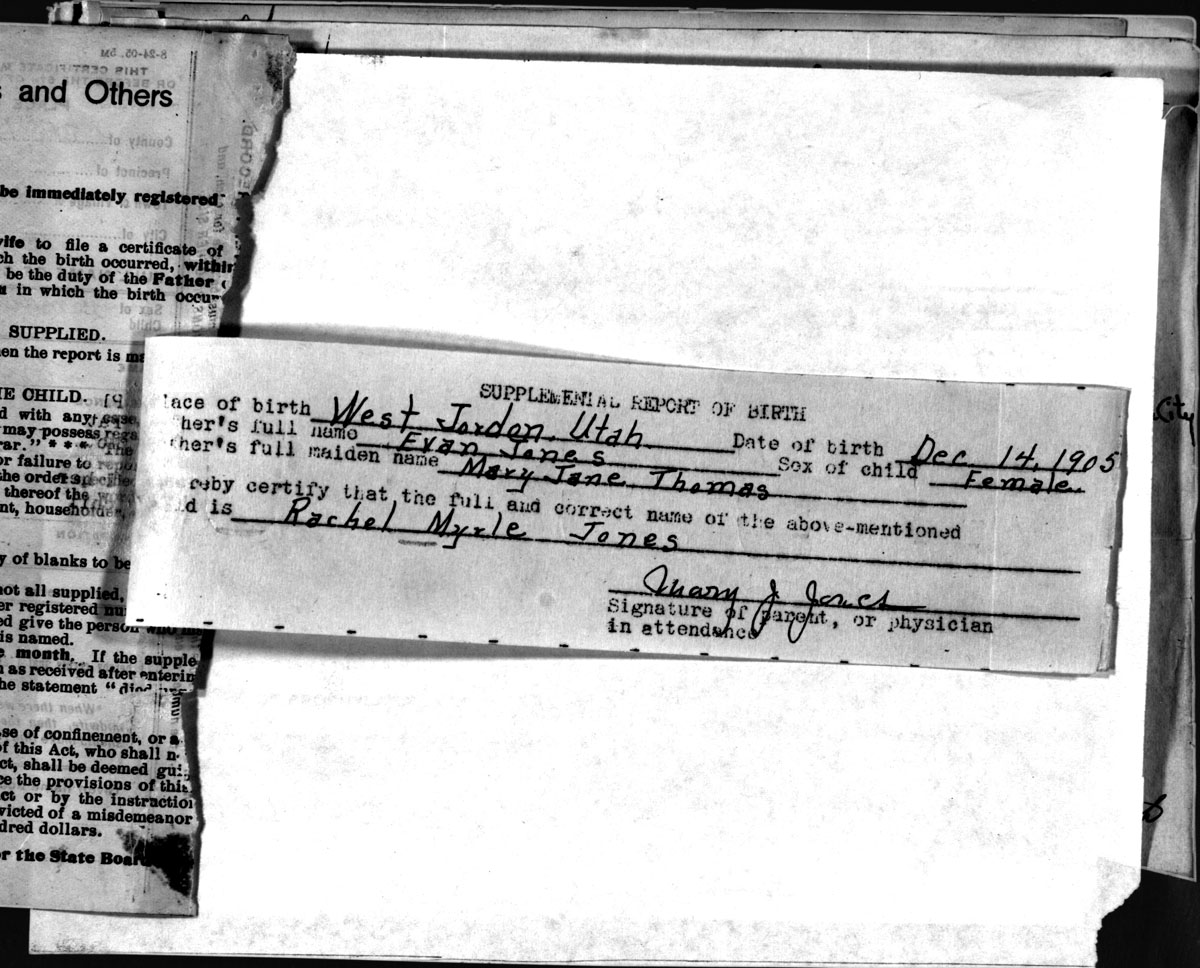 and Others
be immediately registered
wife to file a certificate of
the birth occurred, within
be the duty of the Father
in which the birth occu
SUPPLIED.
en the report is
E CHILD.
d with any
may possess
rar." * * * The
or failure to
the order
thereof the
nt, householder,
y of blanks to be
not all supplied,
er registered
ed give the person
is named.
month. If the supple
as received after enterin
he statement "died
se of confinement, or a
of this Act, who shall
ct, shall be deemed
ce the provisions of this
ct or by the instruction
victed of a misdemeanor
dred dollars.
or the State Boar
SUPPLEMENTAL REPORT OF BIRTH
lace of birth West Jordon, Utah Date of birth Dec 14, 1905
ther's full name Evan Jones Sex of child Female
ther's full maiden name Mary Jane Thomas
reby certify that the full and correct name of the above-mentioned
d is Rachel Myrle Jones
Mary J. Jones
Signature of parent, or physician
in attendance
City
8-24-05. 5M
THIS CERTIFICATE
County of
Precinct of
City of
Sex of
Child
RECORD.